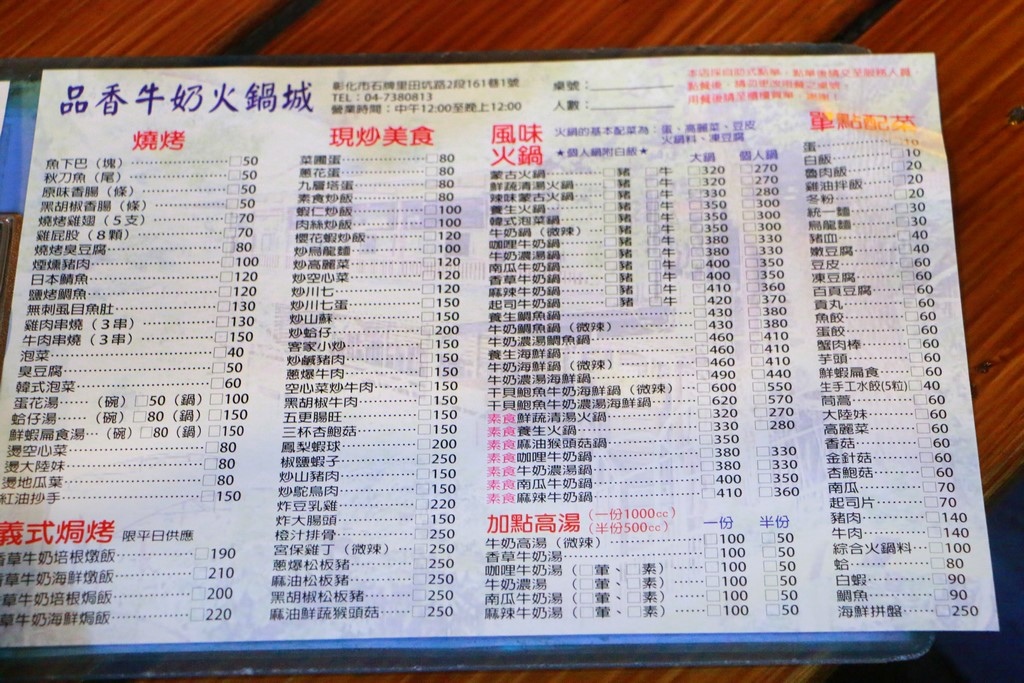 品香牛奶火鍋城
彰化市石牌里田坑路2段161巷1號
TEL：04-7380813
營業時間：中午12:00至晚上12:00
桌號：
人數：
燒烤
魚下巴（塊） 50
秋刀魚（尾） 50
原味香腸（條） 50
黑胡椒香腸（條） 50
燒烤雞翅（5支） 70
雞屁股（8顆） 70
燒烤臭豆腐 80
煙燻豬肉 100
日本鯖魚 120
鹽烤鯛魚 120
無刺虱目魚肚 130
雞肉串燒（3串） 130
牛肉串燒（3串） 150
泡菜 40
臭豆腐 50
韓式泡菜 60
蛋花湯 （碗）□50（鍋）□100
蛤仔湯 （碗）□80（鍋）□150
鮮蝦扁食湯（碗）□80（鍋）□150
燙空心菜 80
燙大陸妹 80
燙地瓜葉 80
紅油抄手 150
義式焗烤 限平日供應
香草牛奶培根燉飯 190
香草牛奶海鮮燉飯 210
草牛奶培根焗飯 200
草牛奶海鮮焗飯 220
現炒美食
菜圃蛋 80
蔥花蛋 80
九層塔蛋 80
素食炒飯 80
蝦仁炒飯 100
肉絲炒飯 100
櫻花蝦炒飯 120
炒烏龍麵 100
炒高麗菜 120
炒水蓮 120
炒川七 120
炒山蘇 150
炒蛤仔 200
客家小炒 150
炒鹹豬肉 150
蔥爆牛肉 150
空心菜炒牛肉 150
黑胡椒牛肉 150
五更腸旺 150
三杯杏鮑菇 150
鳳梨蝦球 200
椒鹽蝦子 250
炒山豬肉 150
炒鴕鳥肉 150
炸豆乳雞 220
炸大腸頭 150
橙汁排骨 250
宮保雞丁（微辣） 150
蔥爆松板豬 250
麻油松板豬 250
黑胡椒松板豬 250
麻油鮮蔬猴頭菇 250
風味火鍋
火鍋的基本配菜為：蛋、高麗菜、豆皮
火鍋料、凍豆腐
★個人鍋附白飯★ 大鍋 個人鍋
蒙古火鍋 □豬 □牛 □320 □270
鮮蔬清湯火鍋 □豬 □牛 □320 □270
辣味蒙古火鍋 □豬 □牛 □350 □280
養生火鍋 □豬 □牛 □350 □300
韓式泡菜鍋 □豬 □牛 □350 □300
牛奶鍋（微辣） □豬 □牛 □350 □300
咖哩牛奶鍋 □豬 □牛 □380 □330
牛奶濃湯鍋 □豬 □牛 □380 □330
南瓜牛奶鍋 □豬 □牛 □400 □350
香草牛奶鍋 □豬 □牛 □400 □350
麻辣牛奶鍋 □豬 □牛 □410 □360
起司牛奶鍋 □豬 □牛 □420 □370
養生鯛魚鍋 □430 □380
牛奶鯛魚鍋（微辣） □430 □380
牛奶濃湯鯛魚鍋 □460 □410
養生海鮮鍋 □460 □410
牛奶海鮮鍋（微辣） □460 □410
牛奶濃湯海鮮鍋 □490 □440
干貝鮑魚牛奶海鮮鍋（微辣） □600 □550
干貝鮑魚牛奶濃湯海鮮鍋 □620 □570
素食鮮蔬清湯火鍋 □320 □270
素食養生火鍋 □330 □280
素食麻油猴頭菇鍋 □350
素食咖哩牛奶鍋 □380 □330
素食牛奶濃湯鍋 □380 □330
素食南瓜牛奶鍋 □400 □350
素食麻辣牛奶鍋 □410 □360
加點高湯 （一份1000cc）
（半份500cc） 一份 半份
牛奶高湯（微辣） □100 □50
香草牛奶湯 □100 □50
咖哩牛奶湯（□葷、□素） □100 □50
牛奶濃湯（□葷、□素） □100 □50
南瓜牛奶湯（□葷、□素） □100 □50
麻辣牛奶湯（□葷、□素） □100 □50
單點配菜
蛋 10
白飯 10
魯肉飯 20
雞油拌飯 20
冬粉 20
統一麵 30
烏龍麵 30
豬血 40
嫩豆腐 40
豆皮 40
凍豆腐 40
百頁豆腐 60
貢丸 60
魚餃 60
蛋餃 60
蟹肉棒 60
芋頭 60
鮮蝦扁食 60
生手工水餃(5粒) 40
茼蒿 60
大陸妹 60
高麗菜 60
香菇 60
金針菇 60
杏鮑菇 60
南瓜 70
起司片 70
豬肉 140
牛肉 140
綜合火鍋料 100
蛤 80
白蝦 90
鯛魚 90
海鮮拼盤 250